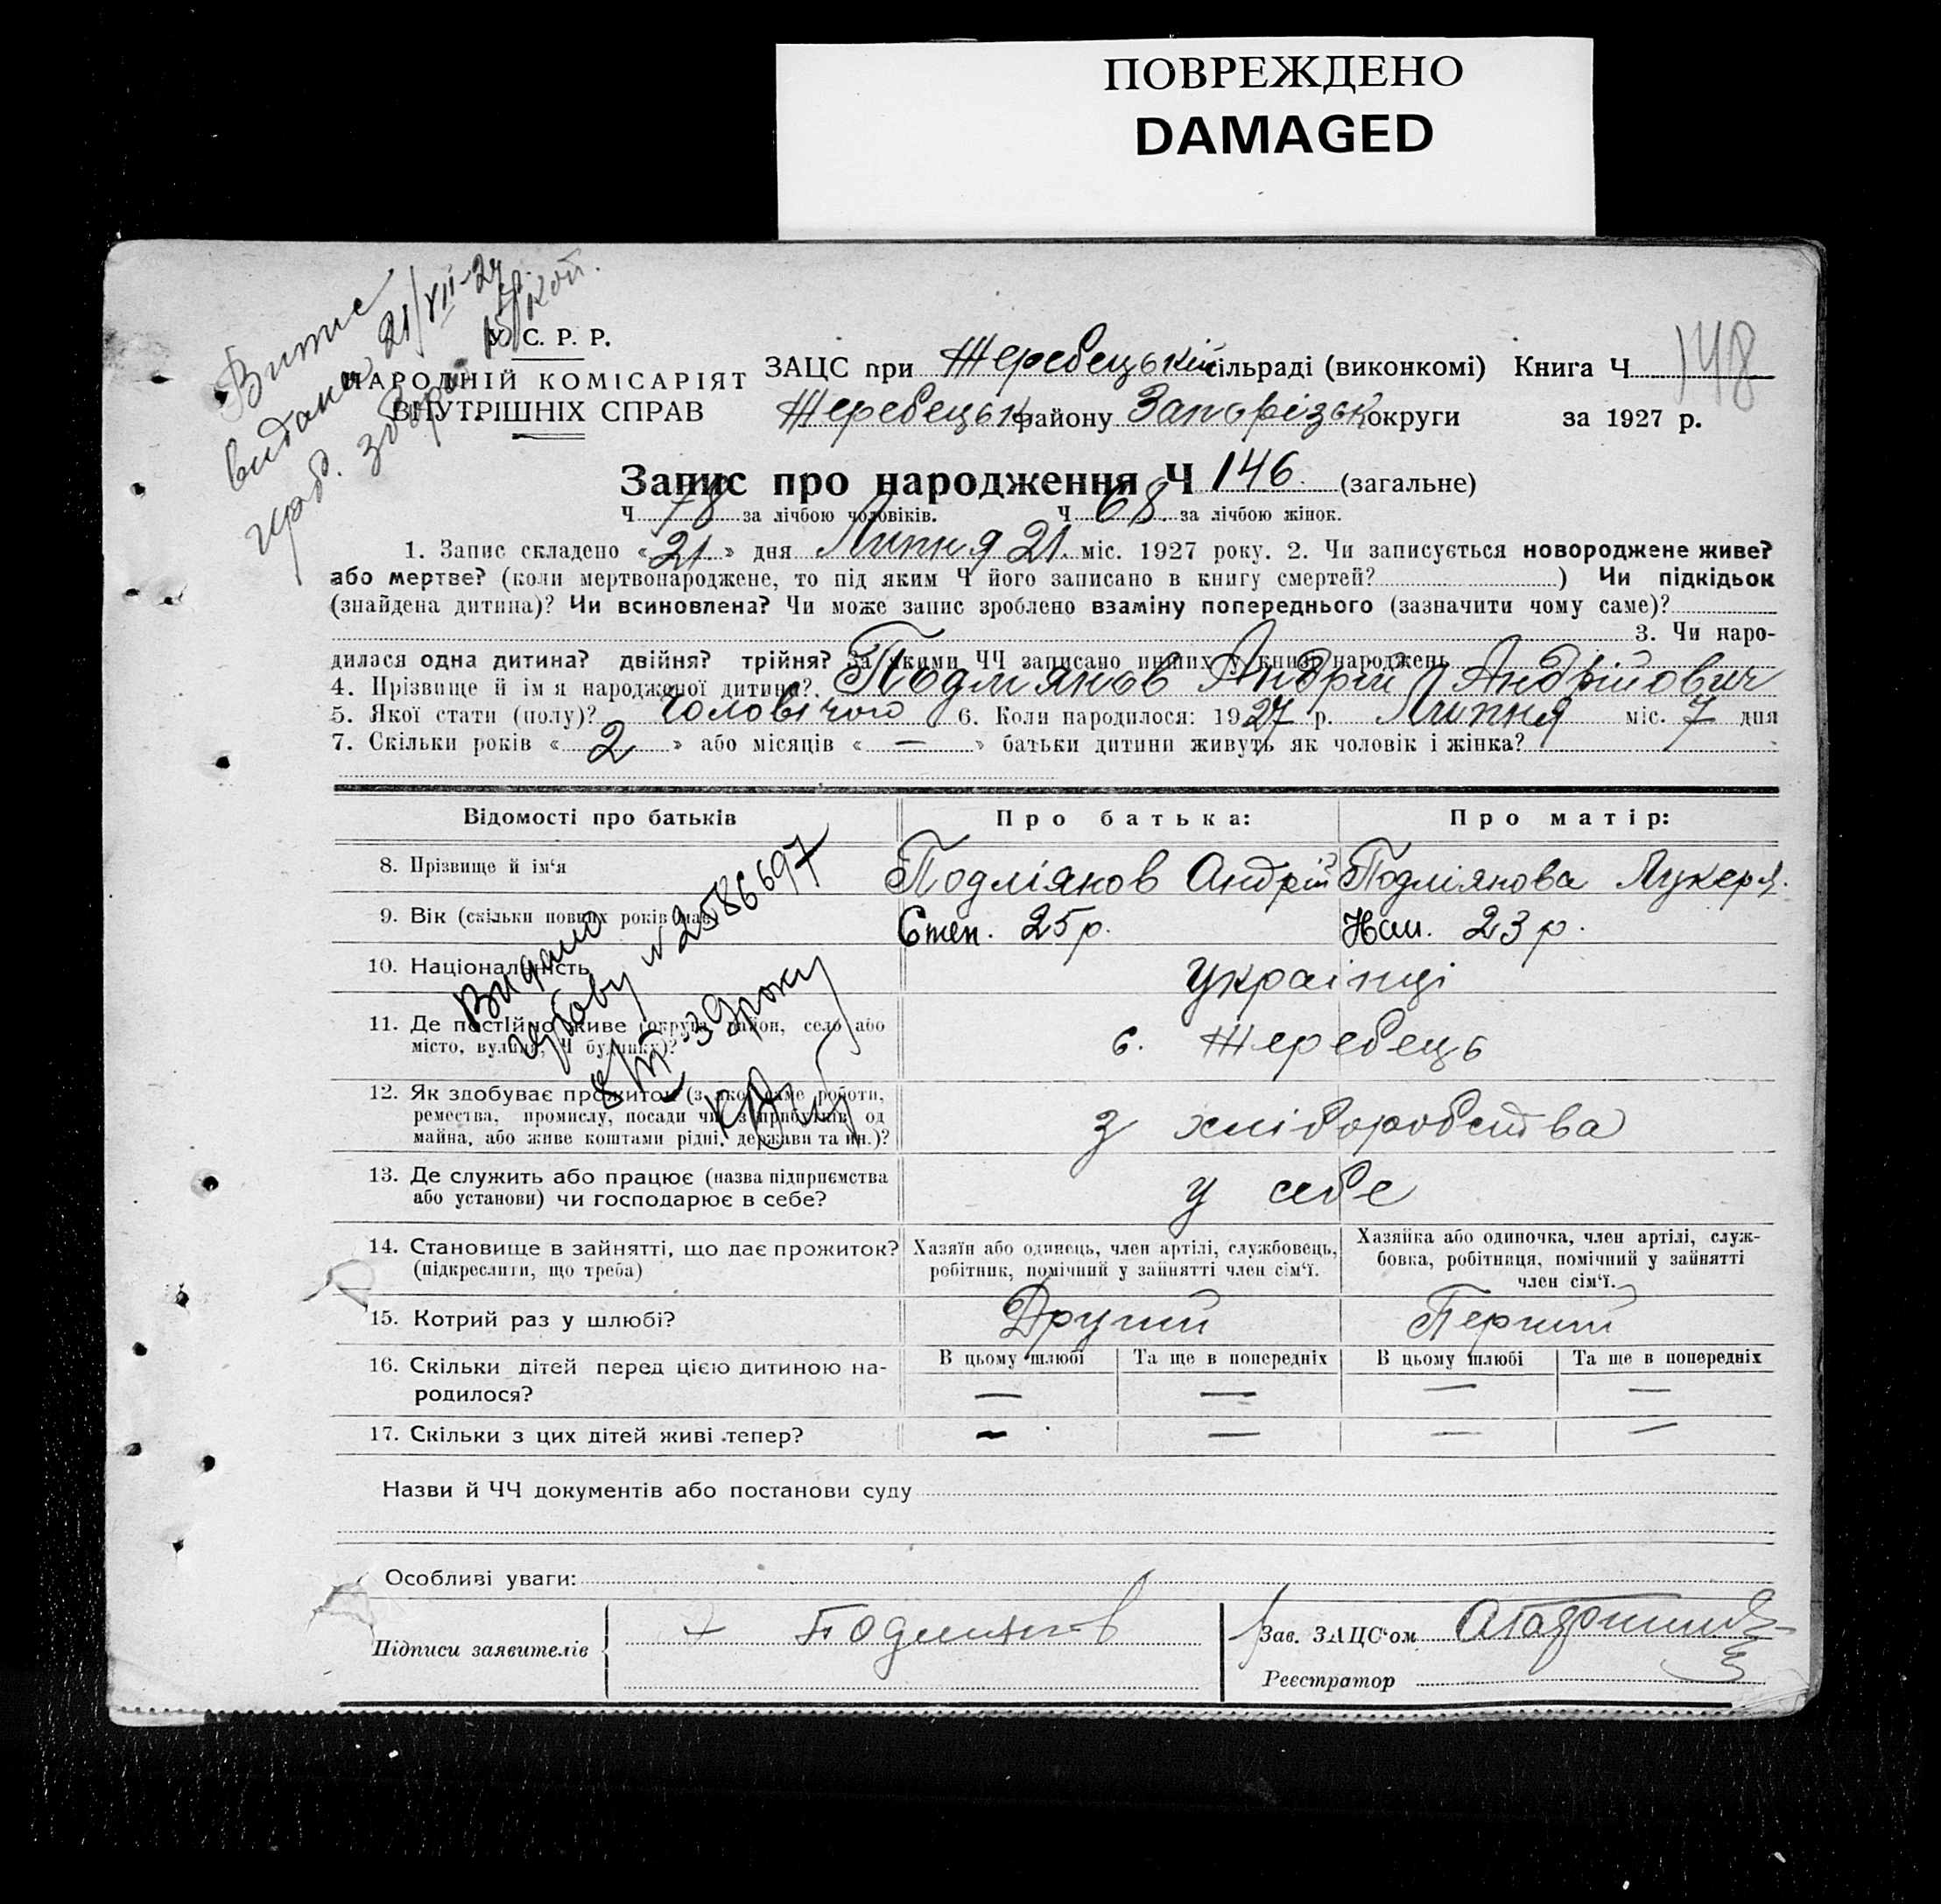 ПОВРЕЖДЕНО
DAMAGED
Витис
видани 21/VII-27
герб. збору 15 коп.
У. С. Р. Р.
НАРОДНІЙ КОМІСАРІЯТ
ВНУТРІШНІХ СПРАВ
ЗАЦС при Жеребецькій сільраді (виконкомі) Книга Ч 148
Жеребецьк району Запорізьк округи за 1927 р.
Запис про народження Ч 146. (загальне)
Ч 78 за лічбою чоловіків. Ч 68. за лічбою жінок.
1. Запис складено «21.» дня Липня 21. міс. 1927 року. 2. Чи записується новороджене живе?
або мертве? (коли мертвонароджене, то під яким Ч його записано в книгу смертей? ) Чи підкідьок
(знайдена дитина)? Чи всиновлена? Чи може запис зроблено взаміну попереднього (зазначити чому саме)?
3. Чи наро-
дилася одна дитина? двійня? трійня? За якими ЧЧ записано инших у книзі народжень
4. Прізвище й ім я народженої дитини? Подліянов Андрій Андрійович
5. Якої стати (полу)? Чоловічого 6. Коли народилося: 1927 р. Липня міс. 7 дня
7. Скільки років «2» або місяців «—» батьки дитини живуть як чоловік і жінка?
Відомості про батьків Про батька: Про матір:
8. Прізвище й ім‘я Подліянов Андрій Подліянова Лукер'я.
9. Вік (скільки повних років має) Степ. 25 р. 23 р.
10. Національність Українці
11. Де постійно живе (округа, район, село або
місто, вулиця, Ч будинку)? с. Жеребець
12. Як здобуває прожиток (з якої саме роботи,
ремества, промислу, посади чи з прибутків од
майна, або живе коштами рідні, держави та ин.)? З хліборобства
13. Де служить або працює (назва підприємства
або установи) чи господарює в себе? у себе
14. Становище в зайнятті, що дає прожиток?
(підкреслити, що треба)
Хазяїн або одинець, член артілі, службовець,
робітник, помічний у зайнятті член сім‘ї.
Хазяйка або одиночка, член артілі, служ-
бовка, робітниця, помічний у зайнятті
член сім‘ї.
15. Котрий раз у шлюбі? Другий Перший
16. Скільки дітей перед цією дитиною на-
родилося?
В цьому шлюбі Та ще в попередніх В цьому шлюбі Та ще в попередніх
— — — —
17. Скільки з цих дітей живі тепер? — — — —
Видано
№ 2586697
39 року
Назви й ЧЧ документів або постанови суду
Особливі уваги:
Підписи заявителів
Зав. ЗАЦС‘ом
Реєстратор